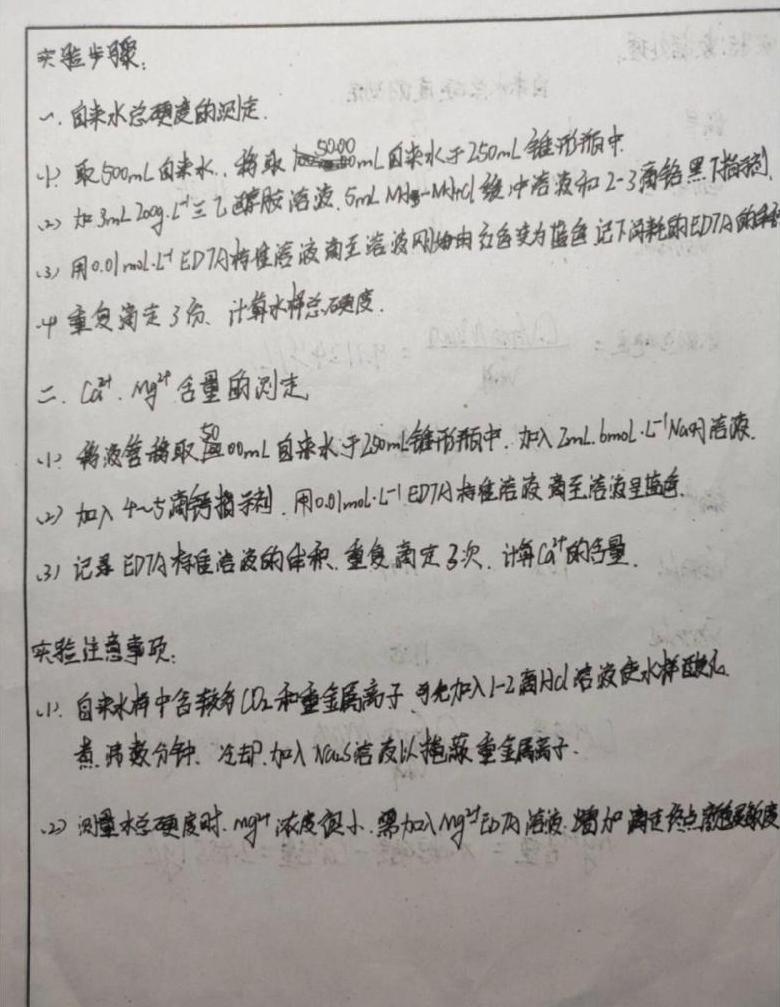 实验步骤:
一. 自来水总硬度的测定.
(1) 取500mL自来水, 移取 50.00mL自来水于250mL锥形瓶中.
(2) 加3mL 200g·L⁻¹三乙醇胺溶液, 5mL NH₃-NH₄Cl缓冲溶液和2-3滴铬黑T指示剂.
(3) 用0.01mol·L⁻¹ EDTA标准溶液滴至溶液刚好由红色变为蓝色 记下消耗的EDTA的体积
(4) 重复滴定3份、计算水样总硬度.
二. Ca²⁺. Mg²⁺含量的测定
(1) 移液管移取50.00mL自来水于250mL锥形瓶中. 加入2mL 6mol·L⁻¹NaOH溶液.
(2) 加入4~5滴钙指示剂. 用0.01mol·L⁻¹EDTA标准溶液滴至溶液呈蓝色.
(3) 记录EDTA标准溶液的体积. 重复滴定3次. 计算Ca²⁺的含量.
实验注意事项:
(1). 自来水样中含较多CO₂和重金属离子 可先加入1-2滴HCl溶液使水样酸化
煮沸数分钟. 冷却. 加入Na₂S溶液以掩蔽重金属离子.
(2) 测量水总硬度时. Mg²⁺浓度很小. 需加入Mg²⁺EDTA溶液. 增加滴定终点灵敏度